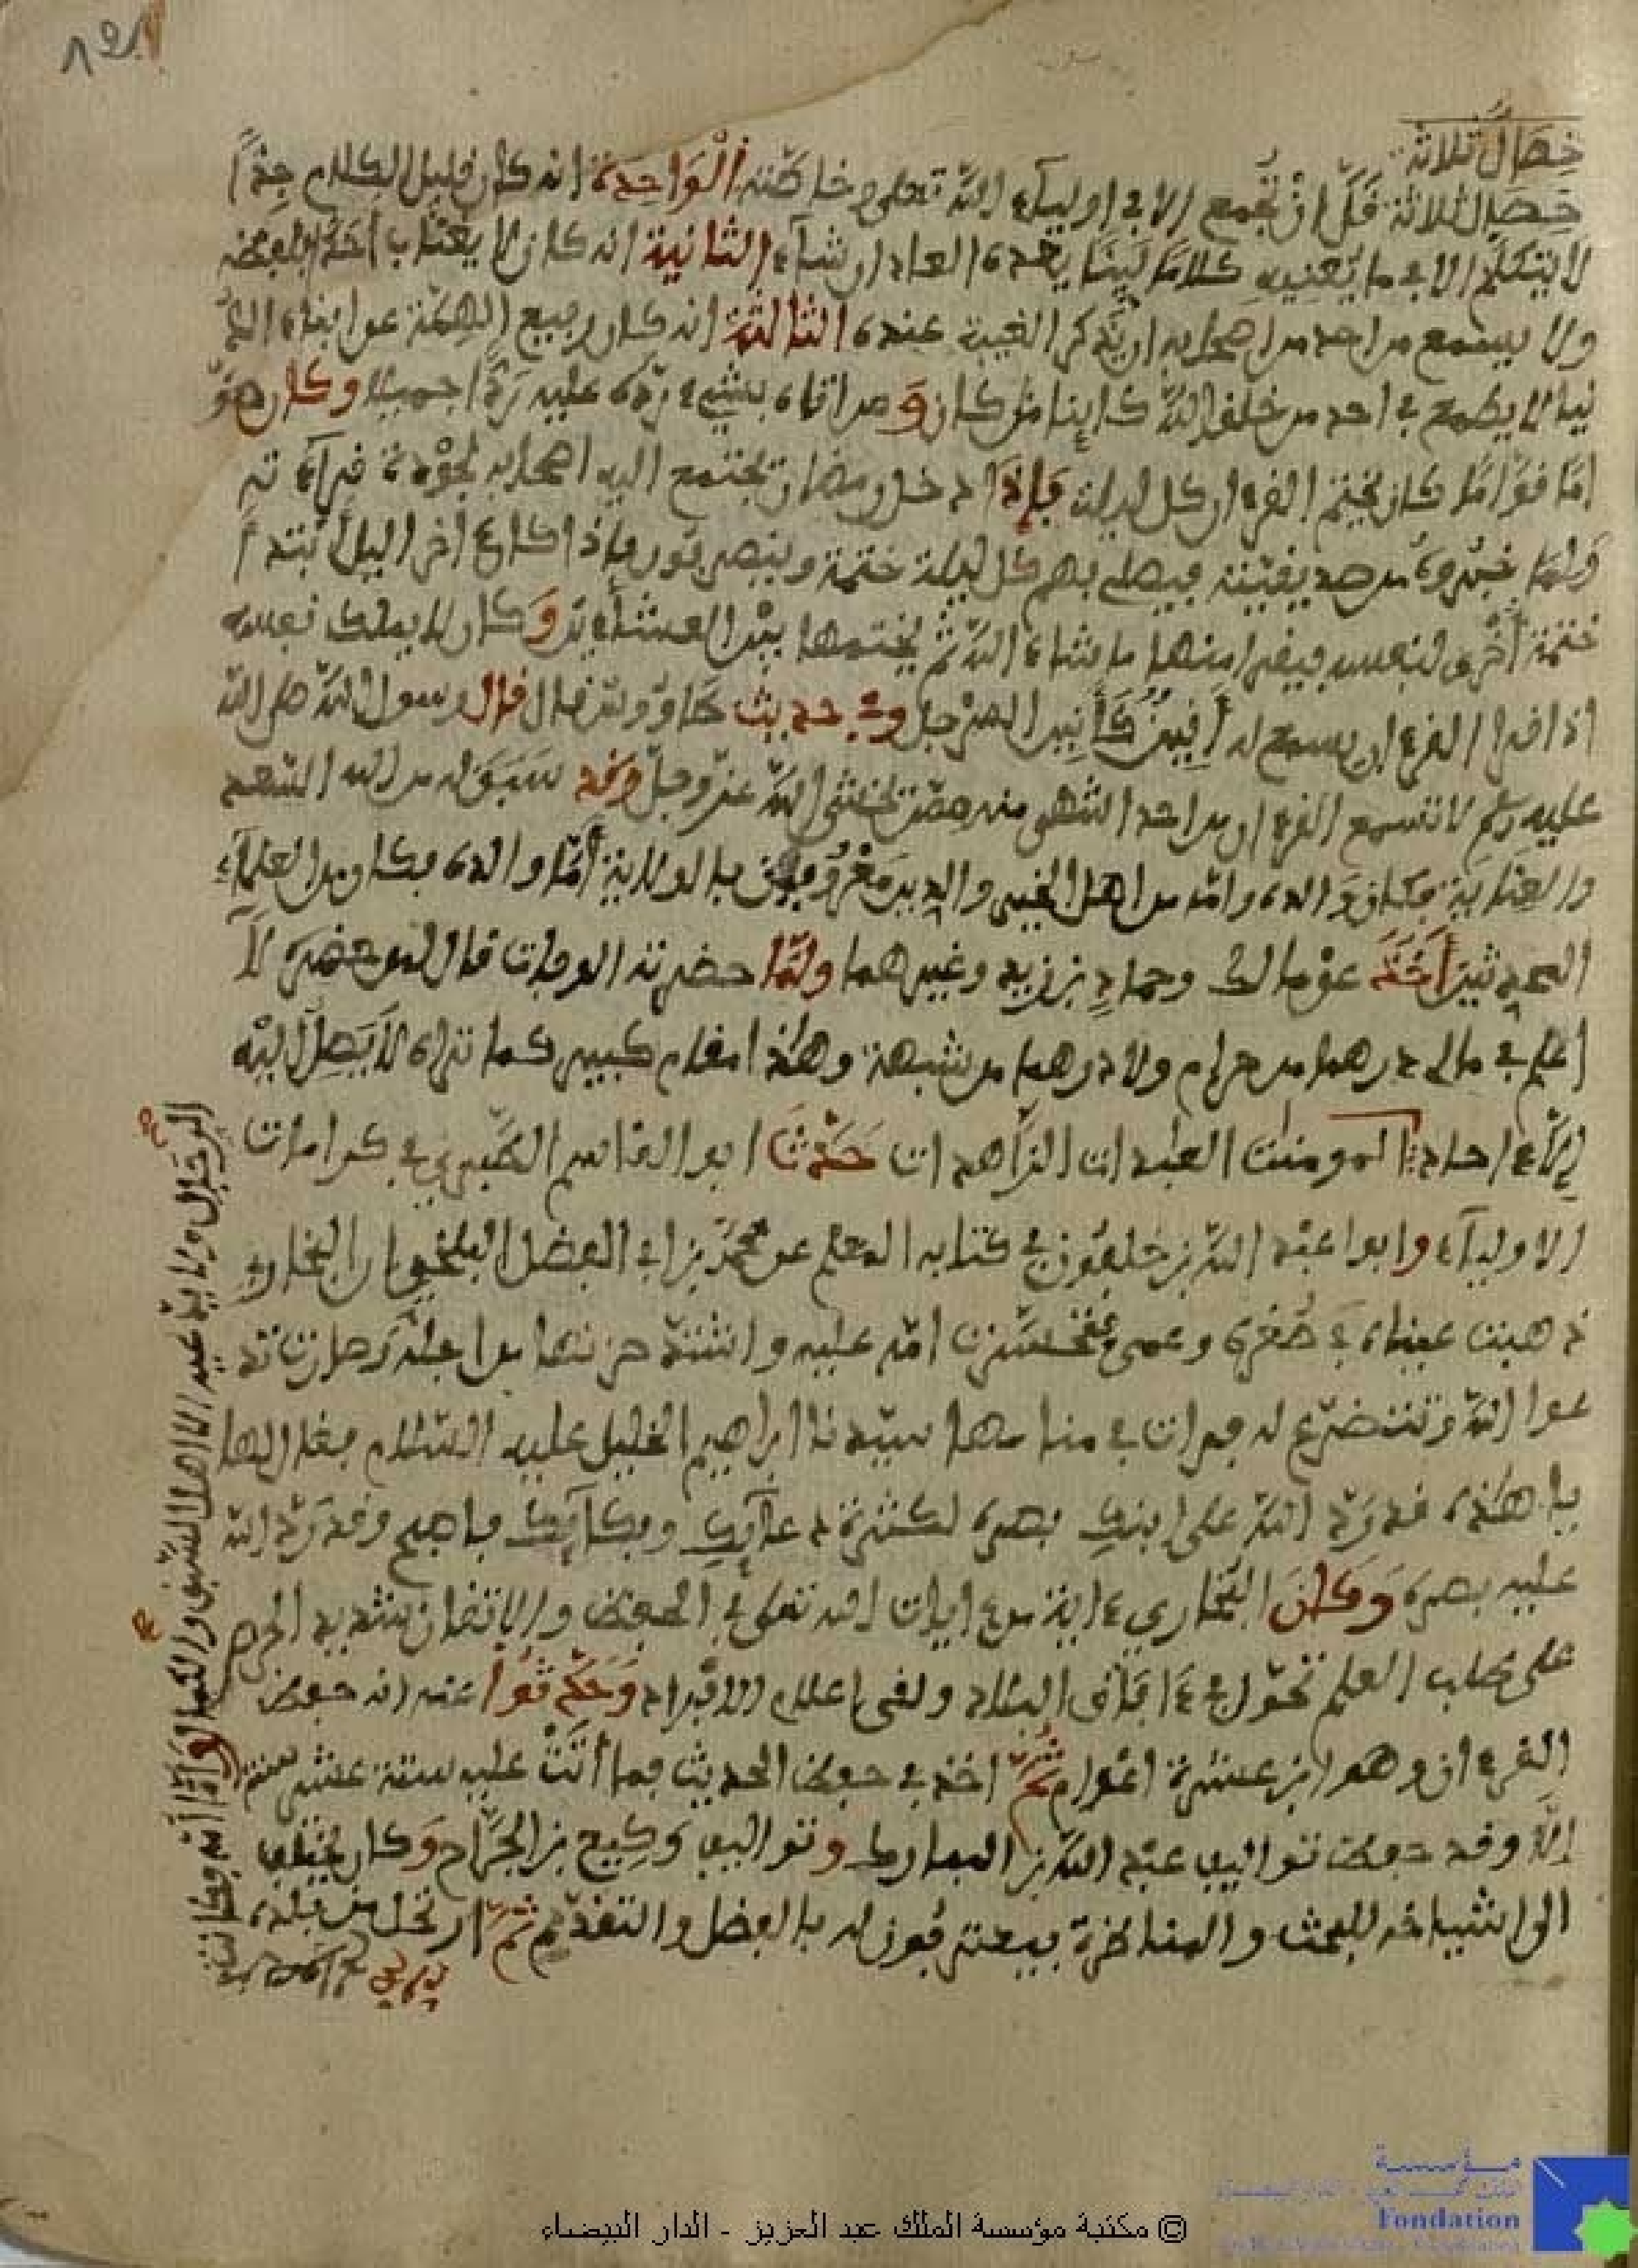 خصال ثلاثة
خصال ثلاثة قل ان تجمع الا في اولياء الله تعلى وخاصته الواحدة انه كان قليل الكلام جدا
لا يتكلم الا في ما يعنيه كلاما لينا يعده العاد ان شاء الثانية انه كان لا يغتاب احدا
ولا يسمع من احد من اصحابه ان يذكر الغيبة عنده الثالثة انه كان رفيع الهمة عن ابناء الد
نيا لا يطمع في احد من خلق الله كاينا من كان و من اتاه بشيء رده عليه ردا جميلا وكان هو
اما قواما كان يختم القرءان كل ليلة فإذا دخل رمضان تجتمع اليه اصحابه لجودة قراءته
فيصلي بهم كل ليلة ختمة وينصرفون فإذا كان ءاخر الليل ابتدا
ختمة اخرى لنفسه فيقرا منها ما شاء الله ثم يختمها بين العشاءين وكان لا يملك نفسه
اذا قرا القرءان يسمع له أنين كأنين المرجل وفي حديث طاووس قال قال رسول الله صلى الله
عليه وسلم لا تسمع القرءان من احد اشهى منه ممن يخشى الله عز وجل وقد سبق له من الله السعد
والعناية فكان والده وامه من اهل الخير والدين معروفون بالولاية أما والده فكان من العلماء
المحدثين أخذ عن مالك وحماد بن زيد وغيرهما ولما حضرته الوفات قال لمن حضره لا
اعلم في مالي درهما من حرام ولا درهما من شبهة وهذا مقام كبير كما تراه لا يصل اليه
إلا ءاحاد المومنات العبدات الزاهدات حدث ابو القاسم الطبري في كرامات
الاولياء وابو عبد الله بن خلفون في كتابه المعلم عن محمد بن ابي الفضل البلخي ان البخاري
ذهبت عيناه في صغره وعمي فخشيت امه عليه واشتد حزنها من اجله وصارت تد
عوا الله وتتضرع له فرات في منامها سيدنا ابراهيم الخليل عليه السلام فقال لها
يا هذه قد رد الله على ابنك بصره لكثرة دعائك وبكائك فاصبح وقد رد الله
عليه بصره وكان البخاري ءاية من ءايات الله تعلى في الحفظ والاتقان شديد الحرص
على طلب العلم تحول في ءافاق البلاد ولقي اعلام الافراد وحدثوا عنه انه حفظ
القرءان وهو ابن عشرة اعوام ثم اخذ في حفظ الحديث فما أتت عليه ستة عشر سنة
إلا وقد حفظ تواليف عبد الله بن المبارك وتواليف وكيع بن الجراح وكان يختلف
الى اشياخه للبحث والمناظرة فيعترفون له بالفضل والتقدم ثم ارتحل من بلده
الرجال ولا يد عيه الا اهل السبق والكمال وأما أمه فكانت
© مكتبة مؤسسة الملك عبد العزيز - الدار البيضاء
مؤسسة
Fondation